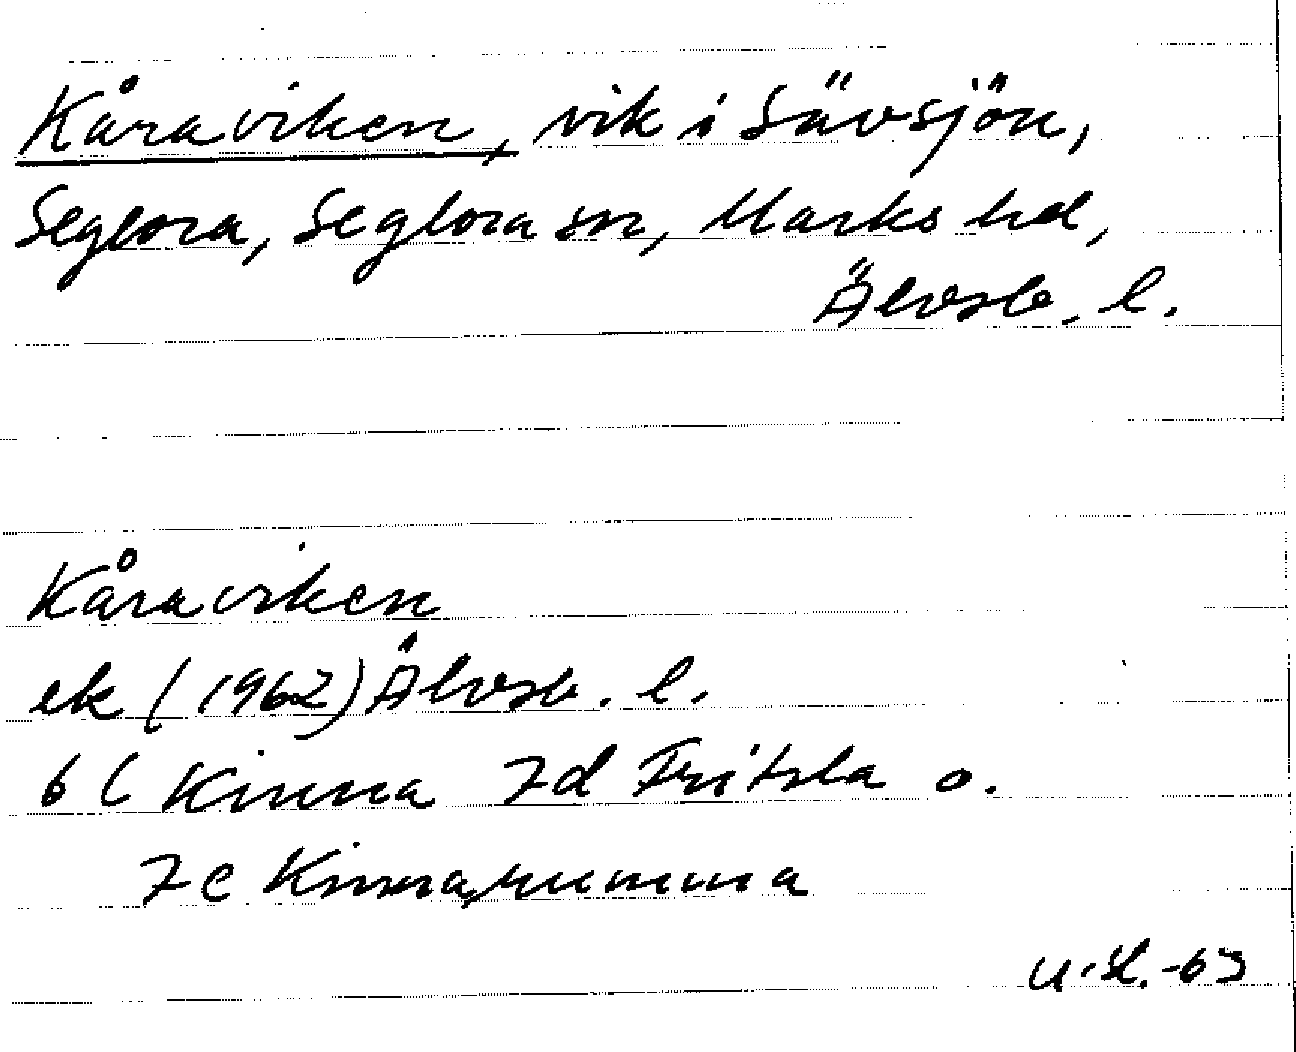 Kåraviken, vik i Sävsjön,
Seglora, Seglora sn, Marks hd,
Älvsb. l.
Kåraviken
ek (1962) Älvsb. l.
6 C Kinna 7d Fritsla o.
7e Kinnarumma
U. St. -63